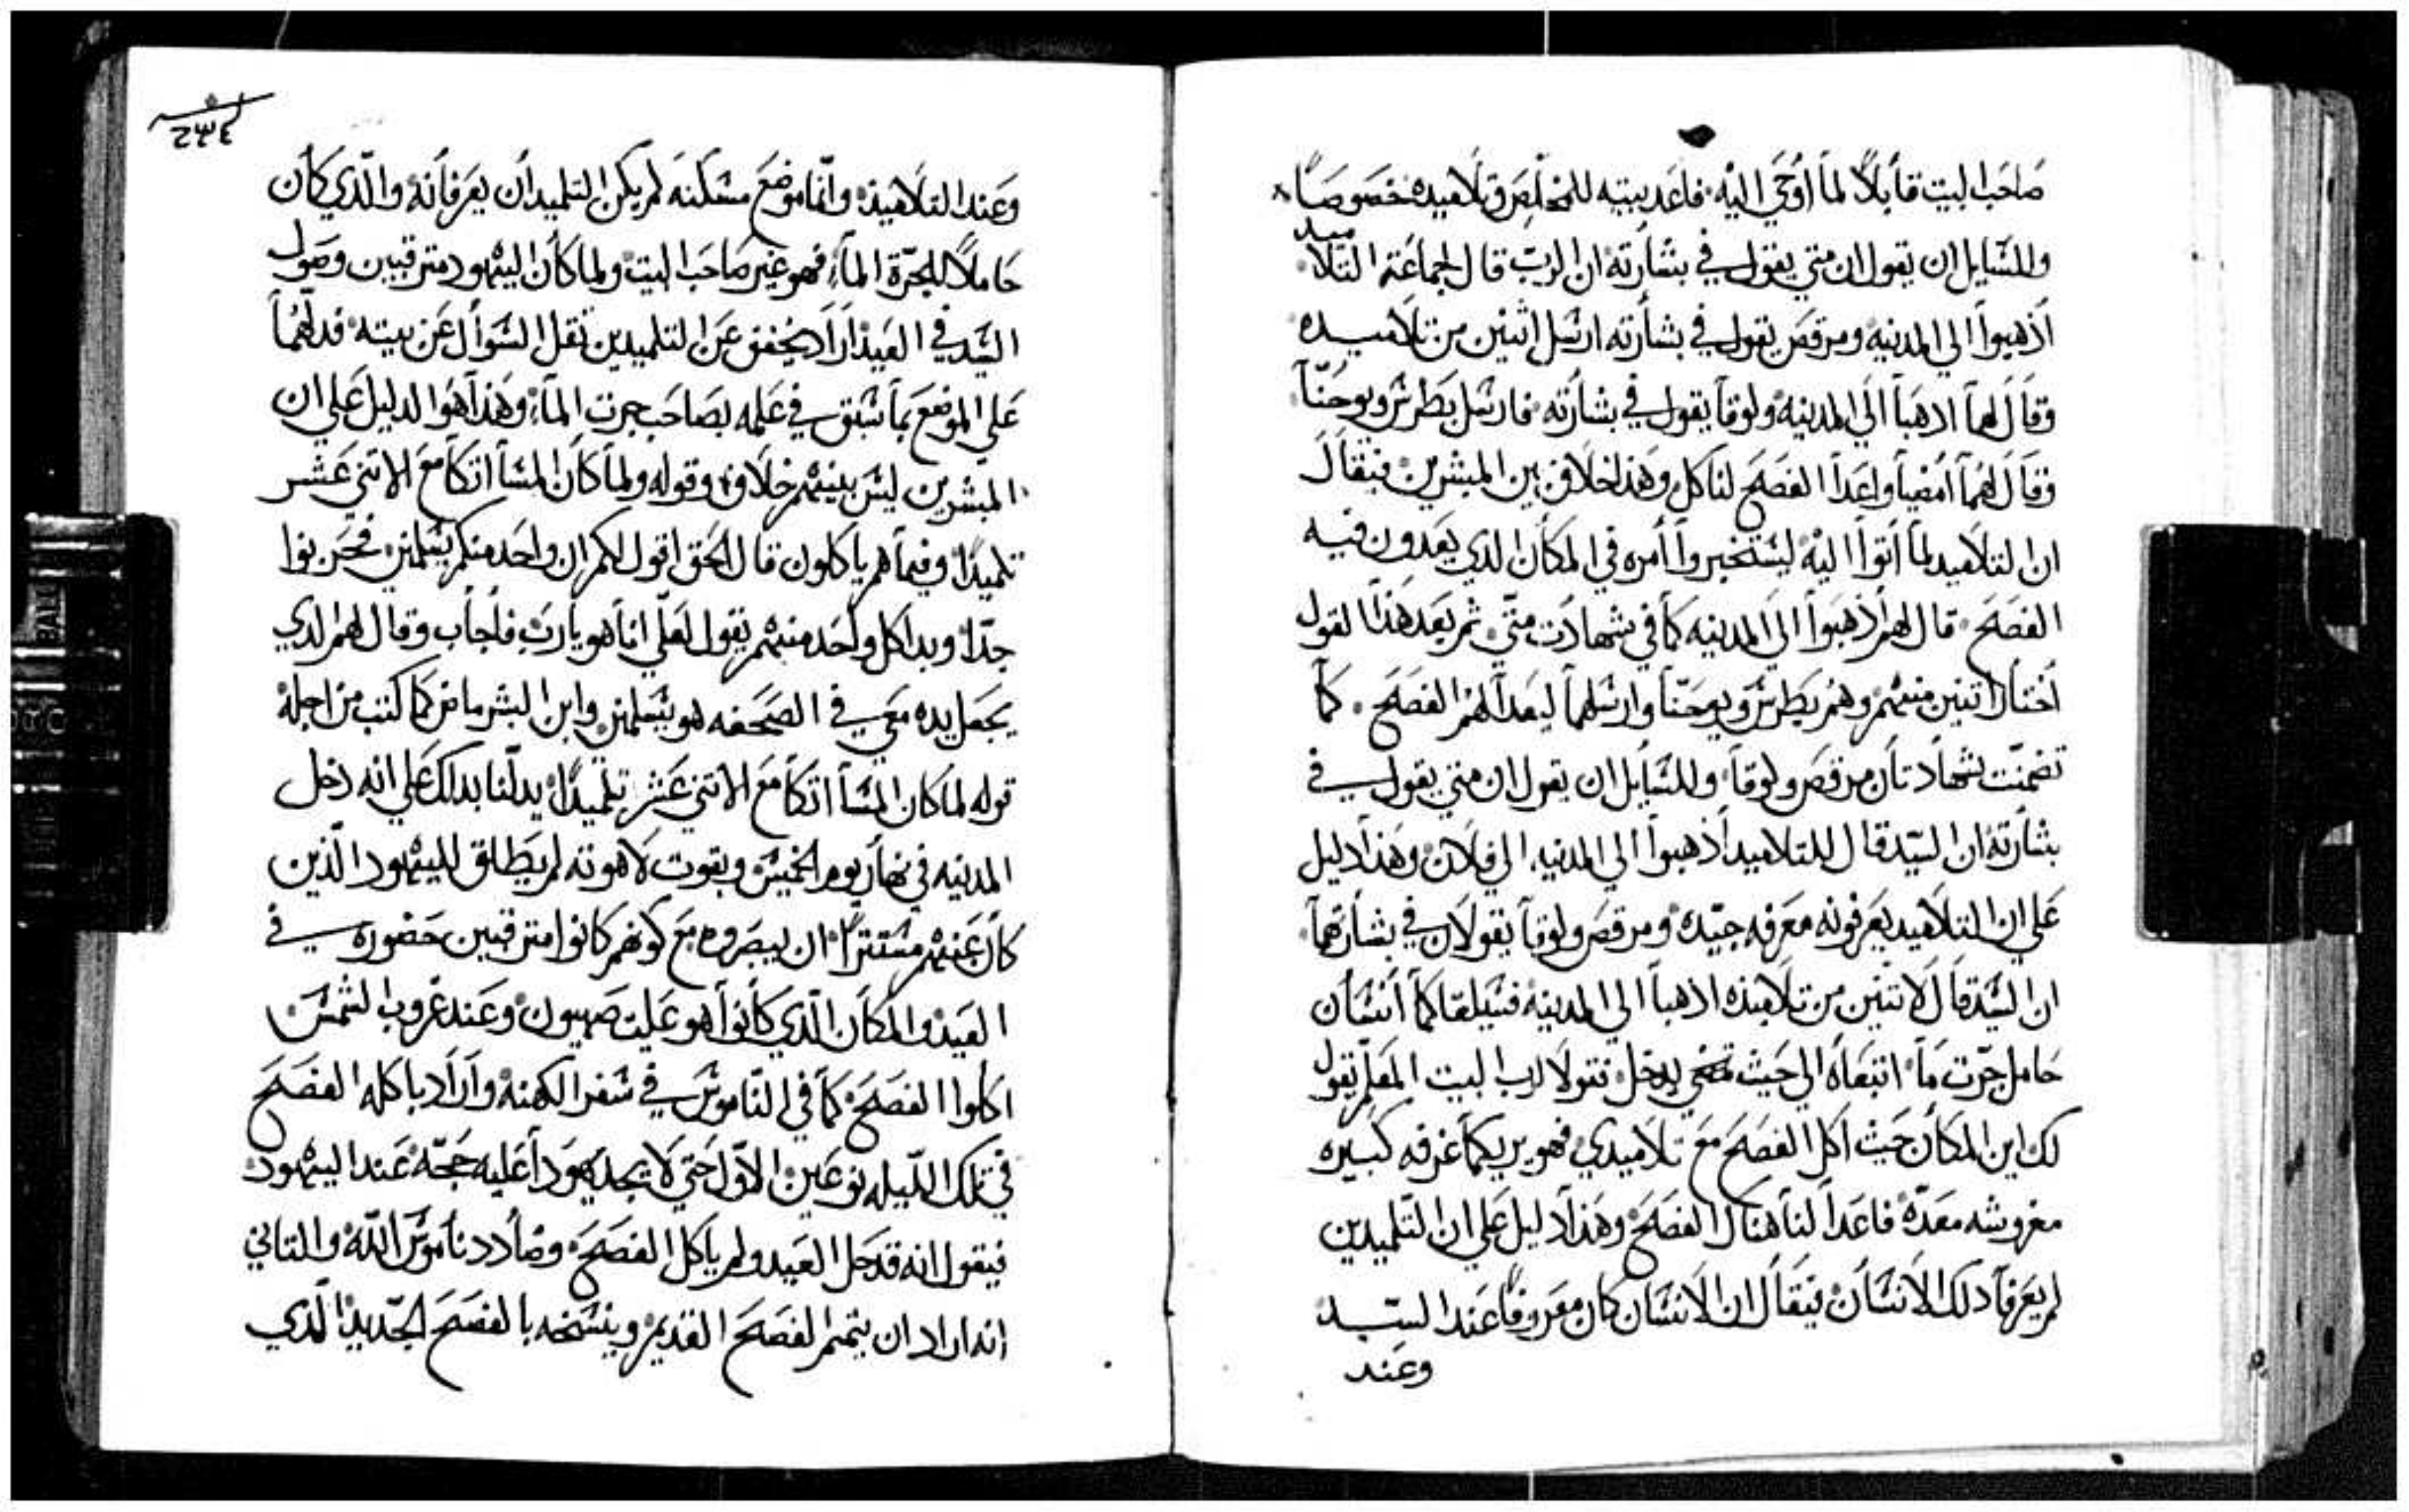 صاحب البيت قابلاً لما أوحي اليه فاعد بيته للمخلص وتلاميده خصوصاً
وللسايل ان يقول ان متي يقول في بشارته ان الرب قال لجماعة التلاميد
أذهبوا الي المدينه ومرقص يقول في بشارته ارسل اثنين من تلاميده
وقال لهما ادهبا الي المدينه ولوقا يقول في بشارته فارسل بطرس ويوحنا
وقال لهما أمضيا واعدا الفصح لناكل وهذا خلاف بين المبشرين فيقال
ان التلاميد لما أتوا اليه ليستخبروا أمره في المكان الدي يعدون فيه
الفصح قال لهم أذهبوا الي المدينه كما في شهادت متي ثم بعد هذا القول
أختار اتنين منهم وهم بطرس ويوحنا وارسلهما ليعدا لهم الفصح كما
تضمنت شهادتان مرقص ولوقا وللسايل ان يقول ان متي يقول في
بشارته ان السيد قال للتلاميد أذهبوا الي المدينه الي فلان وهذا دليل
علي ان التلاميد يعرفونه معرفه جيده ومرقص ولوقا يقولان في بشارتهما
ان السيد قال لاتنين من تلاميذه ادهبا الي المدينه فسيلقاكما أنسان
حامل جرت ما اتبعاه الي حيث يدخل فقولا لرب البيت المعلم يقول
لك اين المكان حيث اكل الفصح مع تلاميدي فهو يريكما غرفه كبيره
مفروشه معده فاعدا لنا هناك الفصح وهذا دليل علي ان التلميدين
لم يعرفا دلك الانسان فيقال ان الانسان كان معروفاً عند السيد
وعند
٢٣٤
وعند التلاميذ وانما موضع مسكنه لم يكن التلميدان يعرفانه والذي كان
حاملاً للجرة الماء فهو غير صاحب البيت ولما كان اليهود مترقبين وصول
السيد في العيد اراد يخفف عن التلميدين تقل السوال عن بيته فدلهما
علي الموضع بما سبق في علمه بصاحب جرت الماء وهذا هوا الدليل علي ان
المبشرين ليس بينهم خلاف وقوله ولما كان المسا اتكا مع الاتني عشر
تلميداً وفيما هم ياكلون قال الحق اقول لكم ان واحد منكم يسلمني فحزنوا
جداً وبدا كل واحد منهم يقول لعلي انا هو يارب فاجاب وقال لهم الدي
يجعل يده معي في الصحفه هو يسلمني وابن البشر ماض كما كتب من اجله
قوله لما كان المسا اتكا مع الاتني عشر تلميداً يدلنا بدلك علي انه دخل
المدينه في نهار يوم الخميس وبقوت لاهوته لم يطلق لليهود الذين
كان عنهم مستتراً ان يبصروه مع كونهم كانوا مترقبين حضوره في
العيد والمكان الذي كانوا هو علية صهيون وعند غروب الشمس
اكلوا الفصح كما في الناموس في سفر الكهنه وأراد باكله الفصح
في تلك الليله نوعين الاول حتي لا يجد يهودا عليه حجه عند اليهود
فيقول انه قد حل العيد ولم ياكل الفصح وضادد ناموس الله والتاني
انه اراد ان يتمم الفصح القديم وينسخه بالفصح الجديد الذي